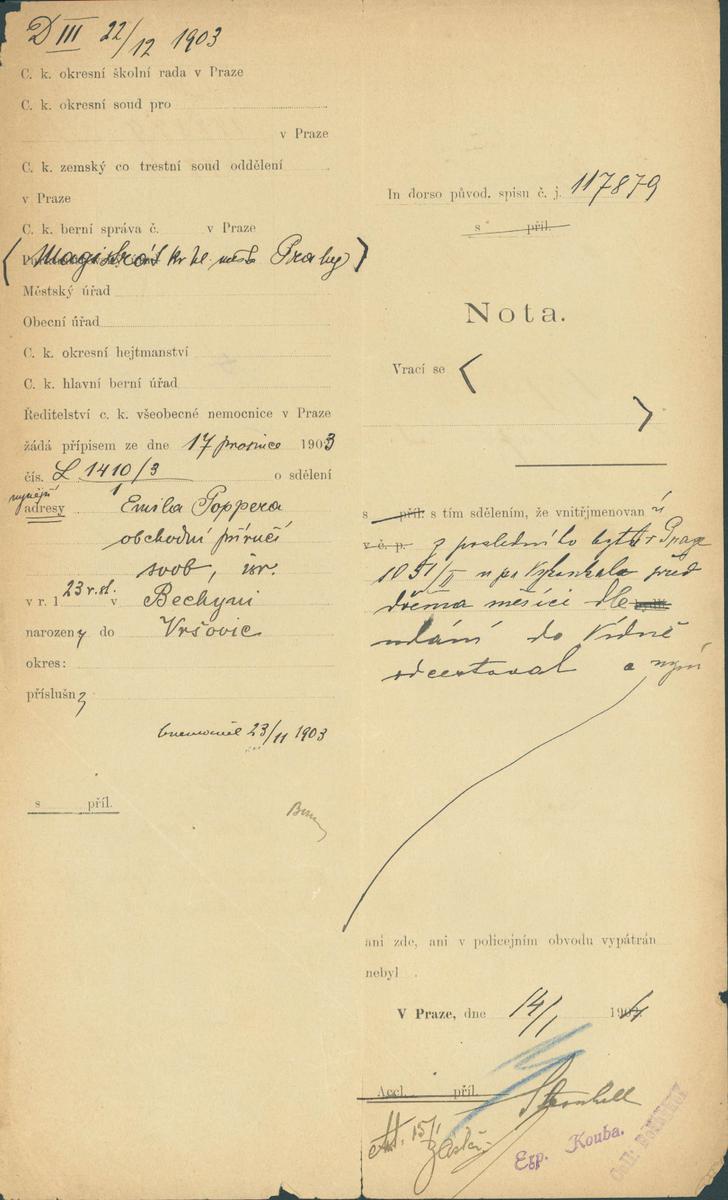 D III 22/12 1903
C. k. okresní školní rada v Praze
C. k. okresní soud pro
v Praze
C. k. zemský co trestní soud oddělení
v Praze
C. k. berní správa č. v Praze
(Magistrát kr. hl. města Prahy)
Městský úřad
Obecní úřad
C. k. okresní hejtmanství
C. k. hlavní berní úřad
Ředitelství c. k. všeobecné nemocnice v Praze
žádá přípisem ze dne 17 prosince 1903
čís. L 1410/3 o sdělení
nynější
adresy Emila Poppera
obchodní příručí
svob, isr.
23 r. st.
v r. 1 v Bechyni
narozený do Vršovic
okres:
příslušný
23/11 1903
s příl.
In dorso původ. spisu č. j. 117879
s příl.
Nota.
Vrací se ⟨
⟩
s příl. s tím sdělením, že vnitřjmenovaný
v č. p. z posledního bytu v Praze
1051/II před
dvěma měsíci dle
udání do Vídně
odcestoval a nyní
ani zde, ani v policejním obvodu vypátrán
nebyl .
V Praze, dne 14/1 1904
Accl. příl.
15/1
Exp. Kouba.
Coll: